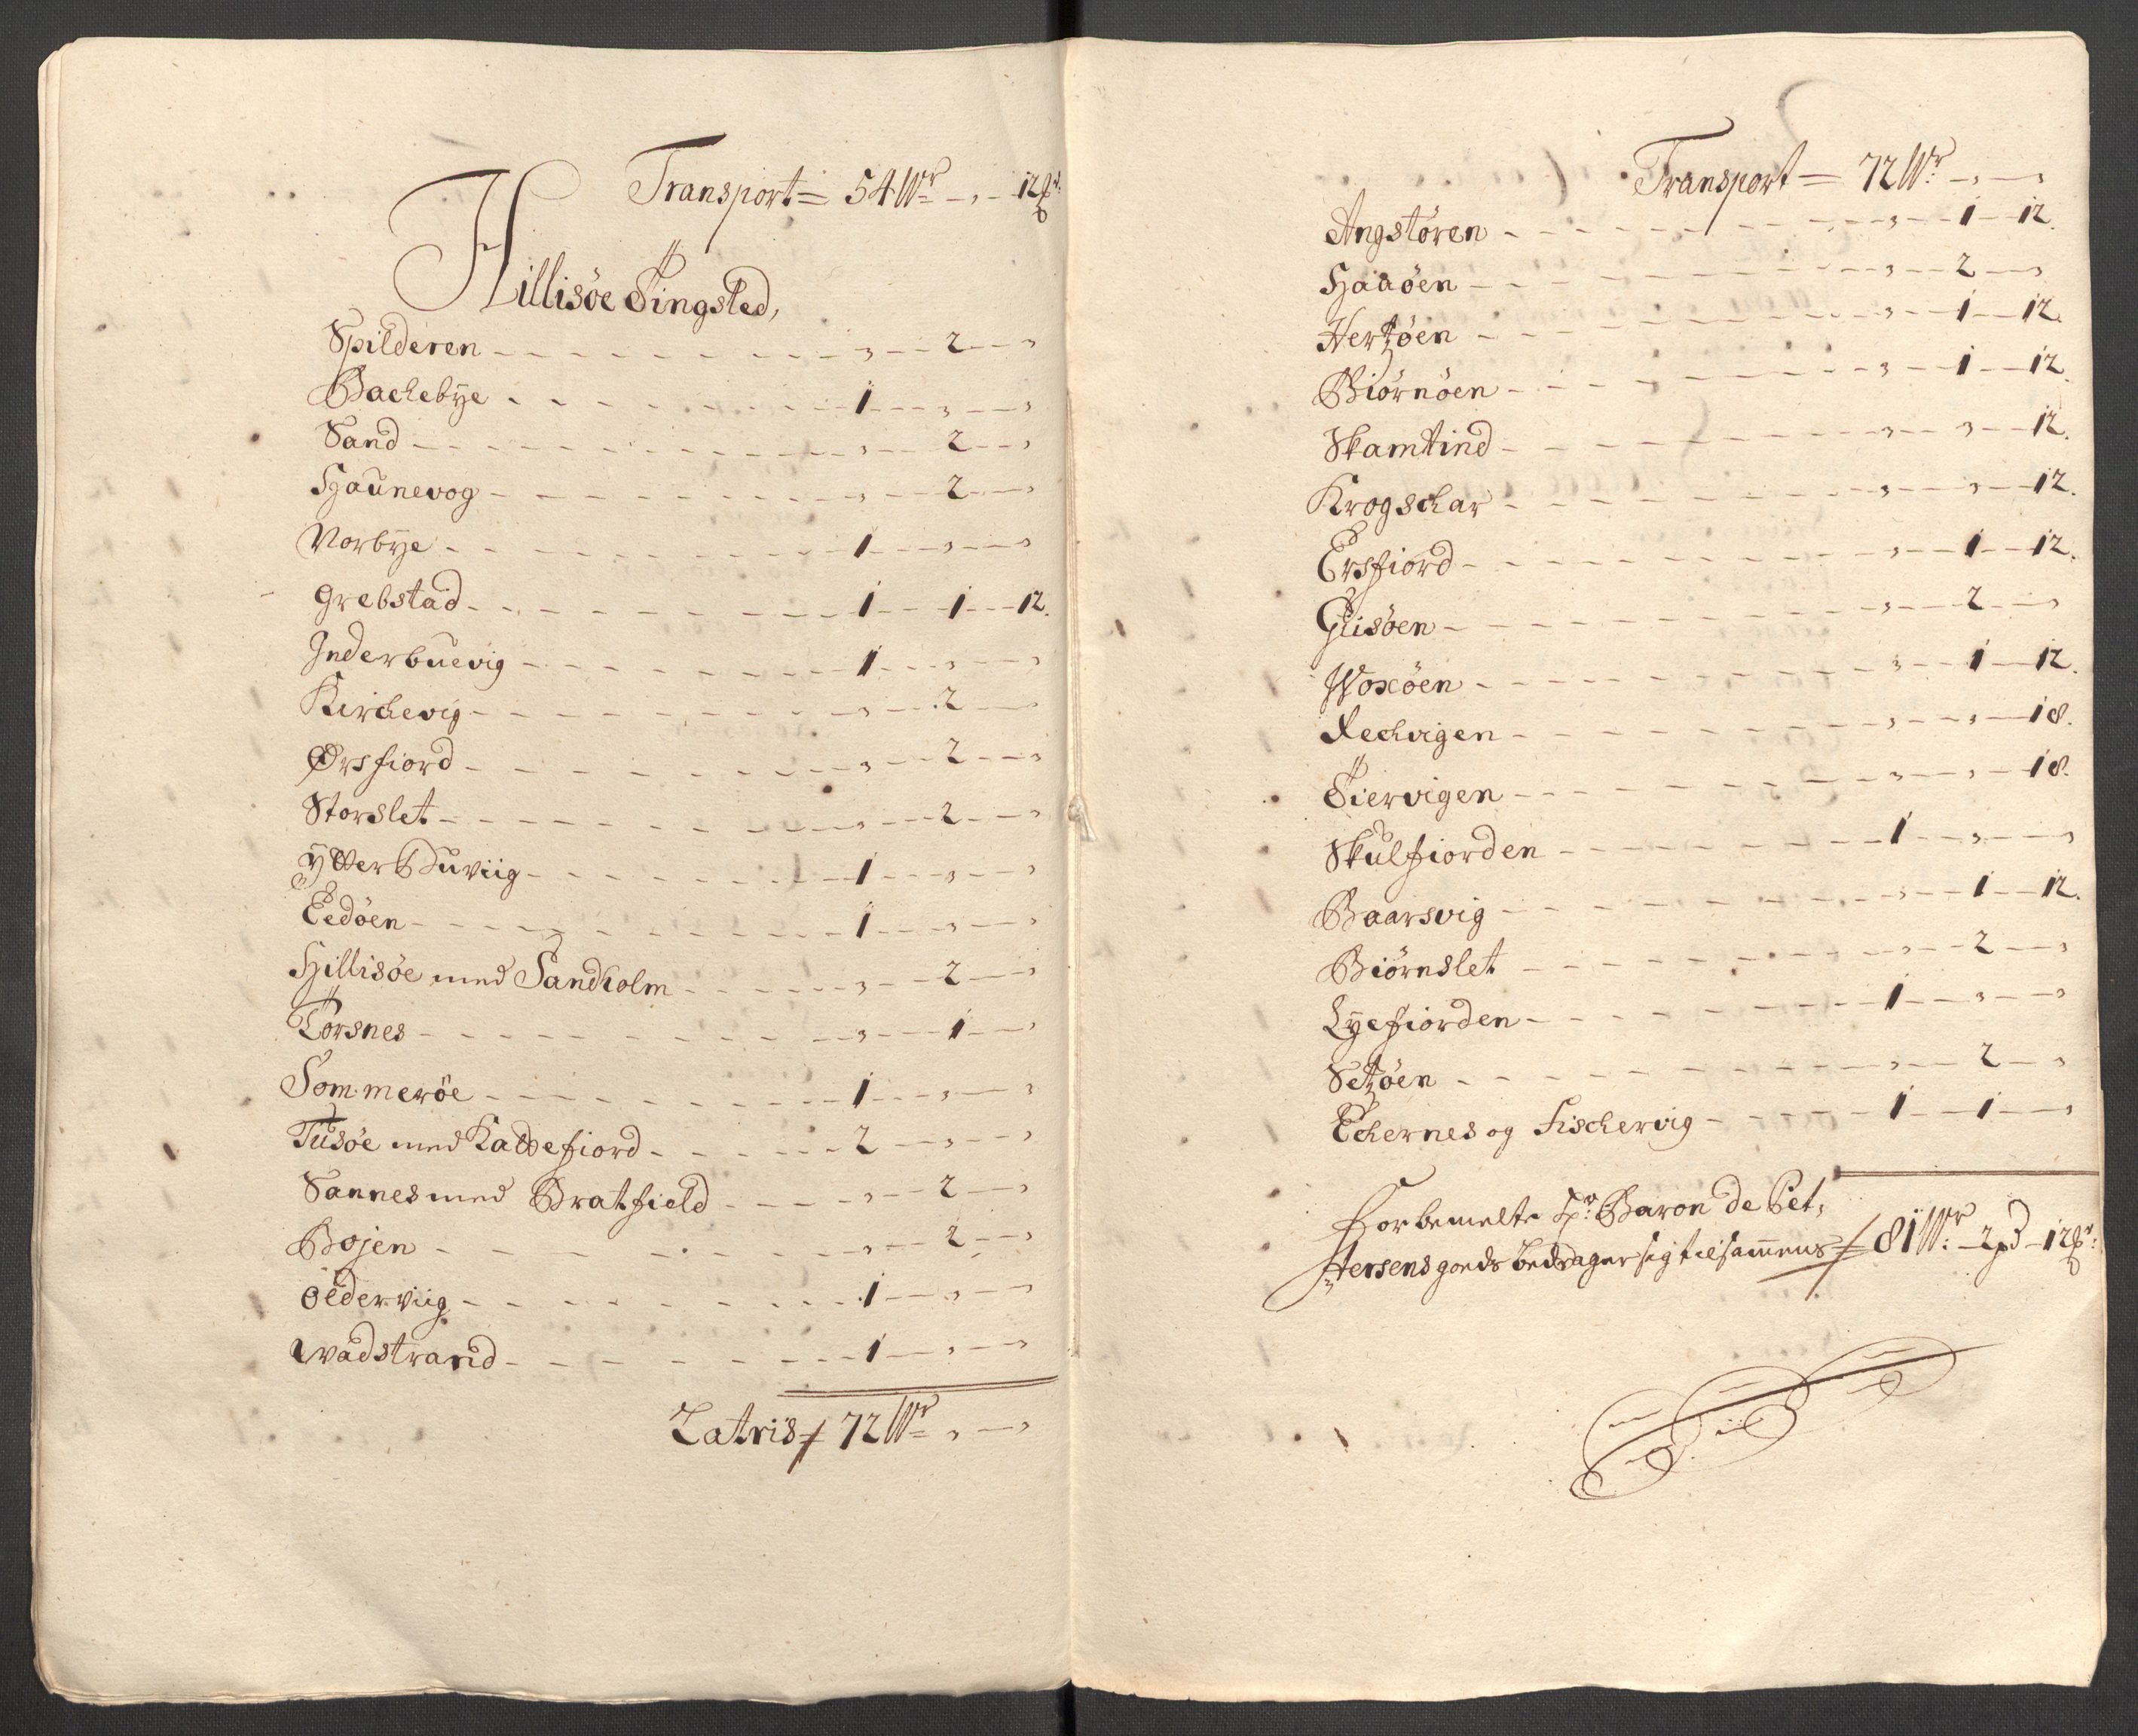 Transport = 54 Wr - , - 12 
Hillisöe Tingsted,
Spilderen - - - , - - 2 - - ,
Bachebÿe - - - 1 - - , - - ,
Sand - - - , - - 2 - - ,
Haunevog - - - , - - 2 - - ,
Vorbÿe - - - 1 - - , - - ,
Grebstad - - - 1 - - 1 - - 12.
Inderbuevig - - - 1 - - , - - ,
Kirchevig - - - , - - 2 - - ,
Ørsfiord - - - , - - 2 - - ,
Storslet - - - , - - 2 - - ,
Ÿtter Buviig - - - 1 - - , - - ,
Eedöen - - - 1 - - , - - ,
Hillisöe med Sandholm - - - , - - 2 - - ,
Törsnes - - - , - - 1 - - ,
Sommeröe - - - 1 - - , - - ,
Tusöe med Kaldefiord - - - 2 - - , - - ,
Sannes med Bratfield - - - , - - 2 - - ,
Bojen - - - , - - 2 - - ,
Olderviig - - - 1 - - , - - ,
Wadstrand - - - 1 - - , - - ,
Latris 72 Wr , - ,
Transport = 72 Wr: - , - ,
Angstören - - - , - - 1 - - 12.
Haaöen - - - , - - 2 - - ,
Hertzöen - - - , - - 1 - - 12.
Biörnöen - - - , - - 1 - - 12.
Skamtind - - - , - - , - - 12.
Krogschar - - - , - - , - - 12.
Ersfiord - - - , - - 1 - - 12.
Giisöen - - - , - - 2 - - ,
Woxöen - - - , - - 1 - - 12.
Rechvigen - - - , - - , - - 18.
Tiervigen - - - , - - , - - 18.
Skulfiorden - - - 1 - - , - - ,
Baarsvig - - - , - - 1 - - 12.
Biörnslet - - - , - - 2 - - ,
Lÿefiorden - - - 1 - - , - - ,
Setzöen - - - , - - 2 - - ,
Echernes og Fischervig - - - 1 - - 1 - - ,
Forbemelte Hr: Baron de Pet,
tersens goeds bedrager sig tilsammens 81 Wr: - 2 pd - 12